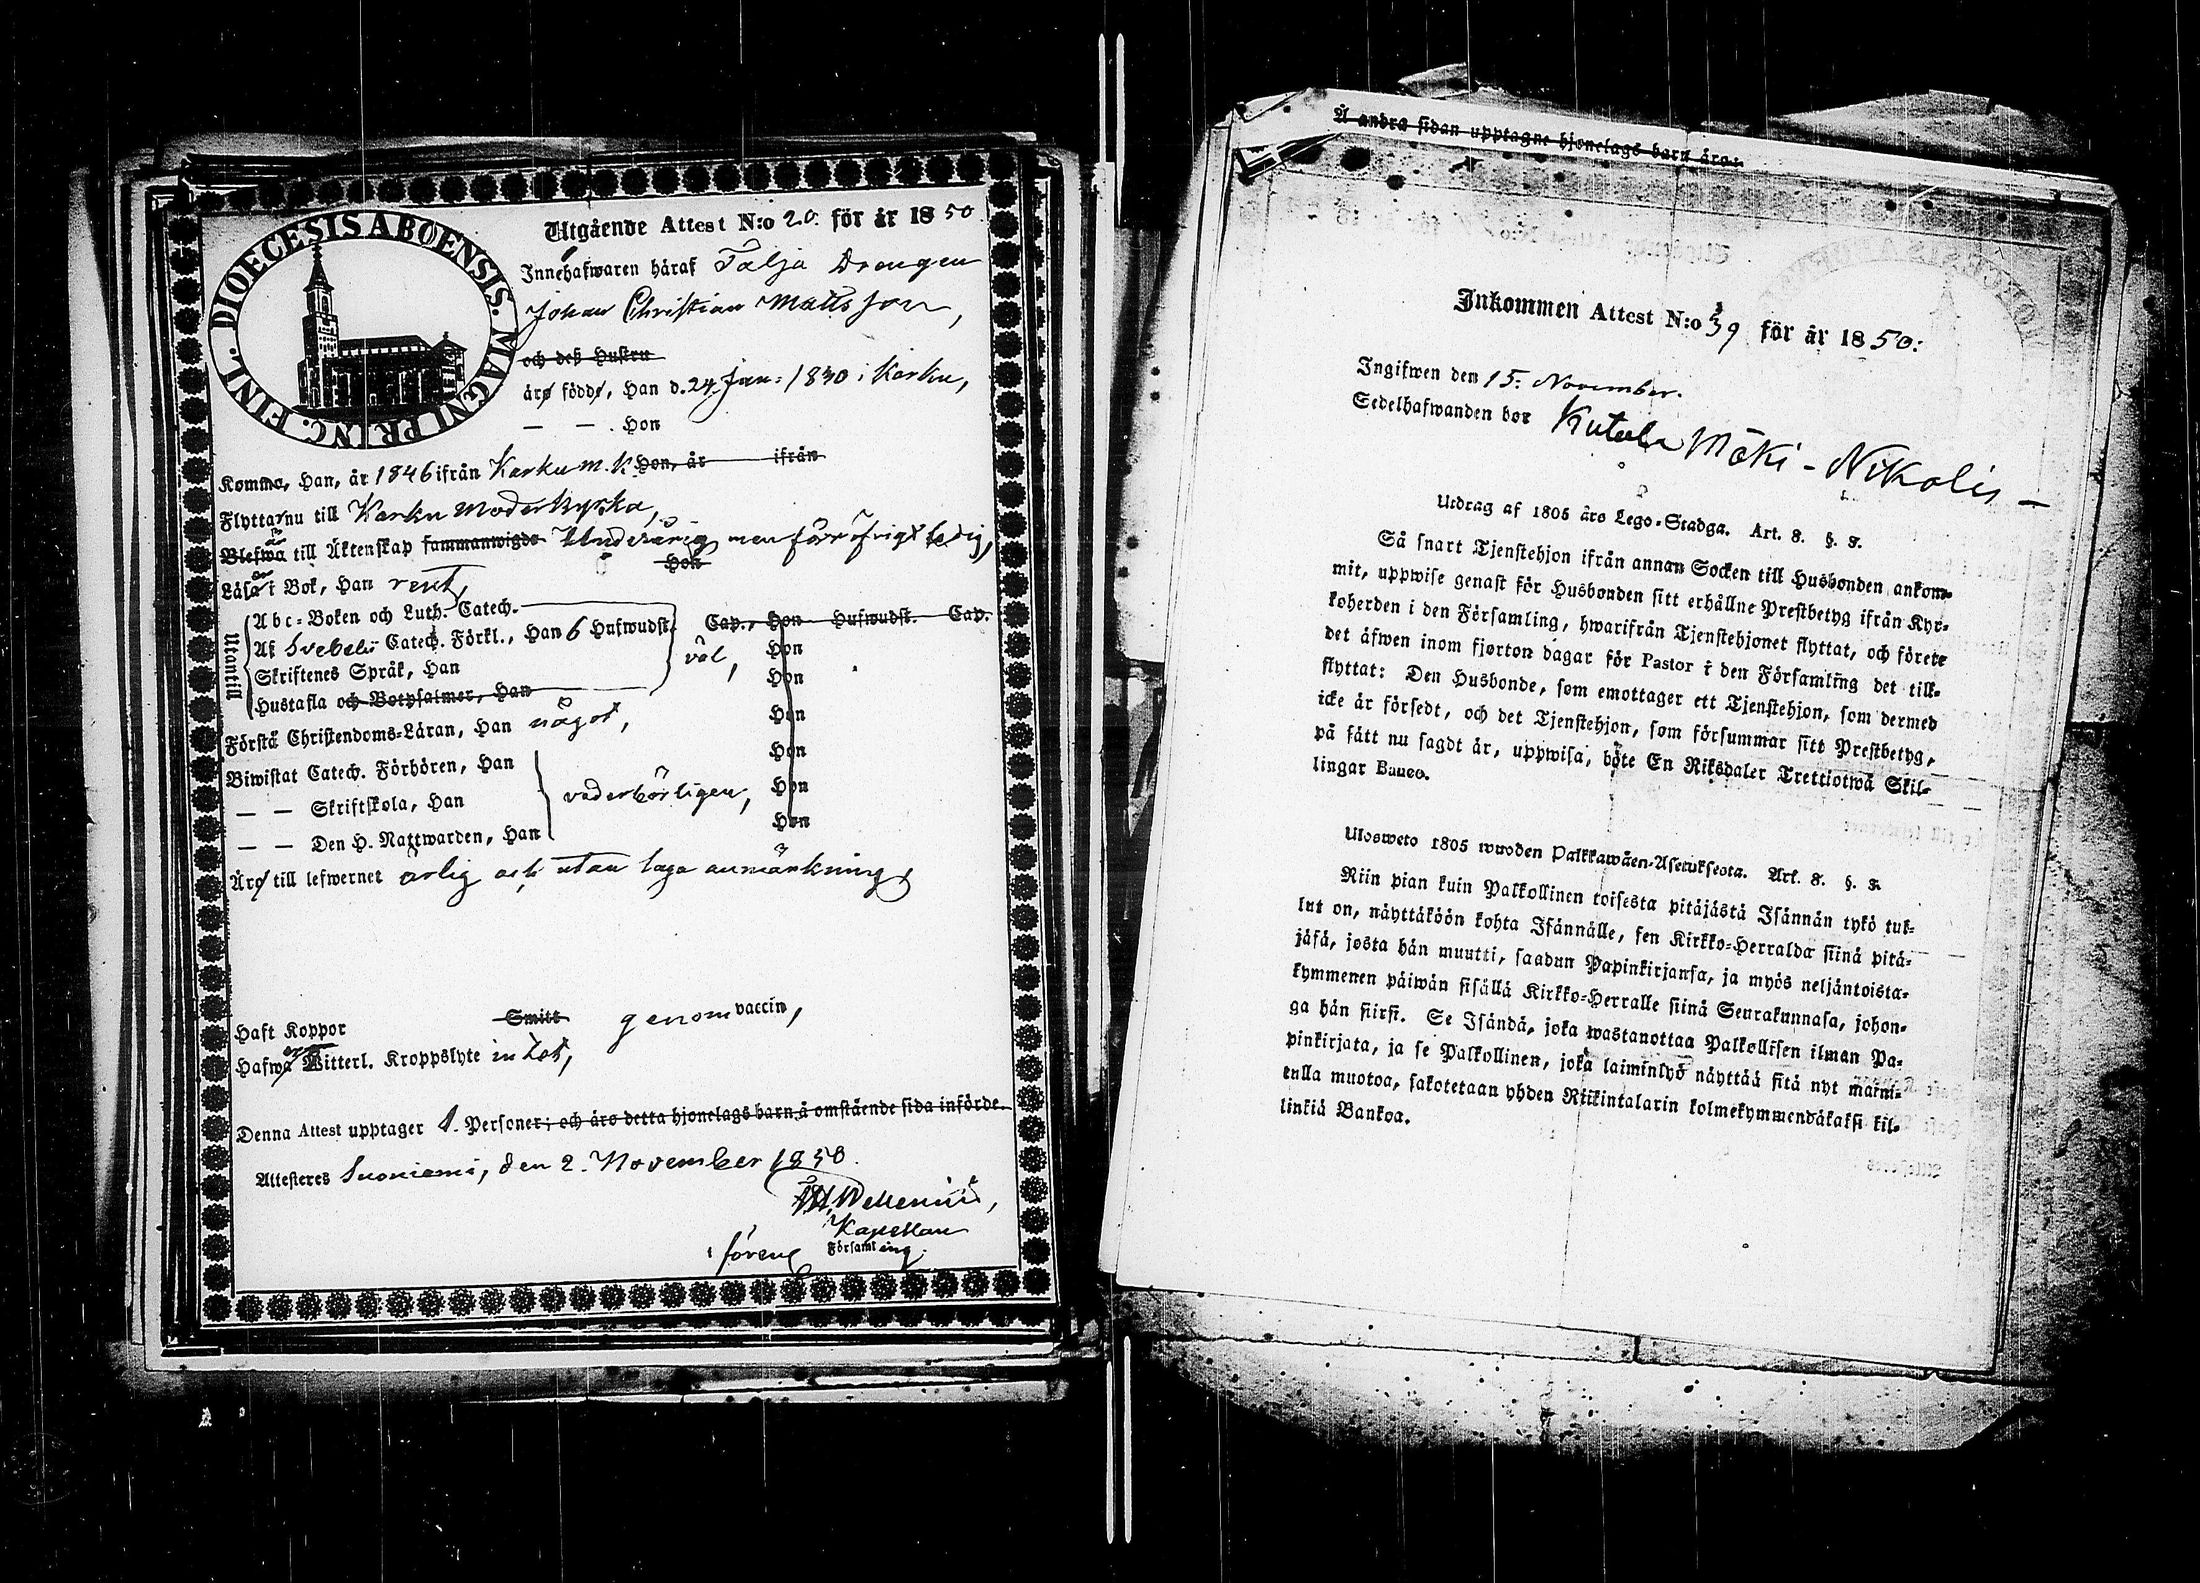 DIOECESIS ABOENSIS. MAGNI PRINC. FINL.
Utgående Attest N:o 20. för år 1850
Innehafwaren häraf Talja Drengen
Johan Christian Mattsson,
och deß Hustru
äro födde, Han d. 24 Jan: 1830 i Karku,
— — Hon
Komne, Han, år 1846 ifrån Karku m. k. Hon, år ifrån
Flyttar nu till Karku Moderkyrka,
till Äktenskap sammanwigde Underårig men för öfrigt ledig,
Hon
Läsa i Bok, Han rent,
Utantill
Abc-Boken och Luth. Catech.
Af Svebelii Catech. Förkl., Han 6 Hufwudst. Cap., Hon Hufwudst. Cap.
Skriftenes Språk, Han väl, Hon
Hustafla och Botpsalmer, Han Hon
Förstå Christendoms-Läran, Han något, Hon
Biwistat Catech. Förhören, Han Hon
— — Skriftskola, Han vederbörligen, Hon
— — Den H. Nattwarden, Han Hon
Äro till lefwernet ärlig och utan laga anmärkning,
Haft Koppor Smitt genom vaccin,
Hafwa Witterl. Kroppslyte intet,
Denna Attest upptager 1. Personer; och äro detta hjonelags barn å omstående sida införde.
Attesteres Suoniemi, den 2. November 1850.
Kapellan
i fören. Församling.
Å andra sidan upptagne hjonelags barn äro:
Inkommen Attest N:o 39 för år 1850:
Ingifwen den 15. November.
Sedelhafwanden bor Kutala Mäki-Nikolis –
Utdrag af 1805 års Lego-Stadga. Art. 8. §. 3.
Så snart Tjenstehjon ifrån annan Socken till Husbonden ankom-
mit, uppwise genast för Husbonden sitt erhållne Prestbetyg ifrån Kyr-
koherden i den Församling, hwarifrån Tjenstehjonet flyttat, och förete
det äfwen inom fjorton dagar för Pastor i den Församling det till-
flyttat: Den Husbonde, som emottager ett Tjenstehjon, som dermed
icke är försedt, och det Tjenstehjon, som försummar sitt Prestbetyg,
på sätt nu sagdt är, uppwisa, böte En Riksdaler Trettiotwå Skil-
lingar Banco.
Ulosweto 1805 wuoden Palkkawäen-Asetuksesta. Art. 8. §. 3.
Niin pian kuin Palkollinen toisesta pitäjästä Isännän tykö tul-
lut on, näyttäköön kohta Isännälle, sen Kirkko-Herralda siinä pitä-
jäsä, josta hän muutti, saadun Papinkirjansa, ja myös neljäntoista-
kymmenen päiwän sisällä Kirkko-Herralle siinä Seurakunnasa, johon-
ga hän siirsi. Se Isändä, joka wastanottaa Palkollisen ilman Pa-
pinkirjata, ja se Palkollinen, joka laiminlyö näyttää sitä nyt maini-
tulla muotoa, sakotetaan yhden Riikintalarin kolmekymmendäkaksi kil-
linkiä Bankoa.